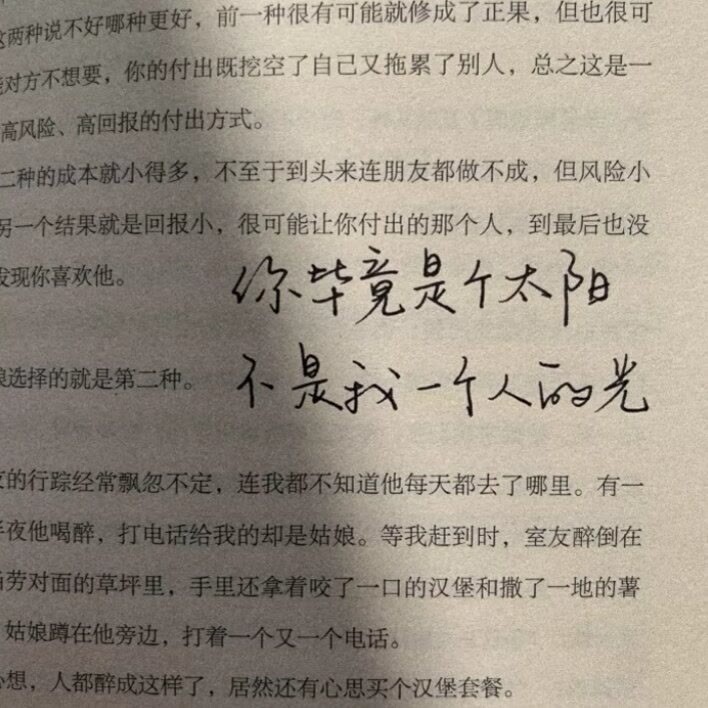 这两种说不好哪种更好，前一种很有可能就修成了正果，但也很可
能对方不想要，你的付出既挖空了自己又拖累了别人，总之这是一
高风险、高回报的付出方式。
二种的成本就小得多，不至于到头来连朋友都做不成，但风险小
另一个结果就是回报小，很可能让你付出的那个人，到最后也没
发现你喜欢他。
你毕竟是个太阳
娘选择的就是第二种。
不是我一个人的光
的行踪经常飘忽不定，连我都不知道他每天都去了哪里。有一
半夜他喝醉，打电话给我的却是姑娘。等我赶到时，室友醉倒在
当劳对面的草坪里，手里还拿着咬了一口的汉堡和撒了一地的薯
姑娘蹲在他旁边，打着一个又一个电话。
心想，人都醉成这样了，居然还有心思买个汉堡套餐。